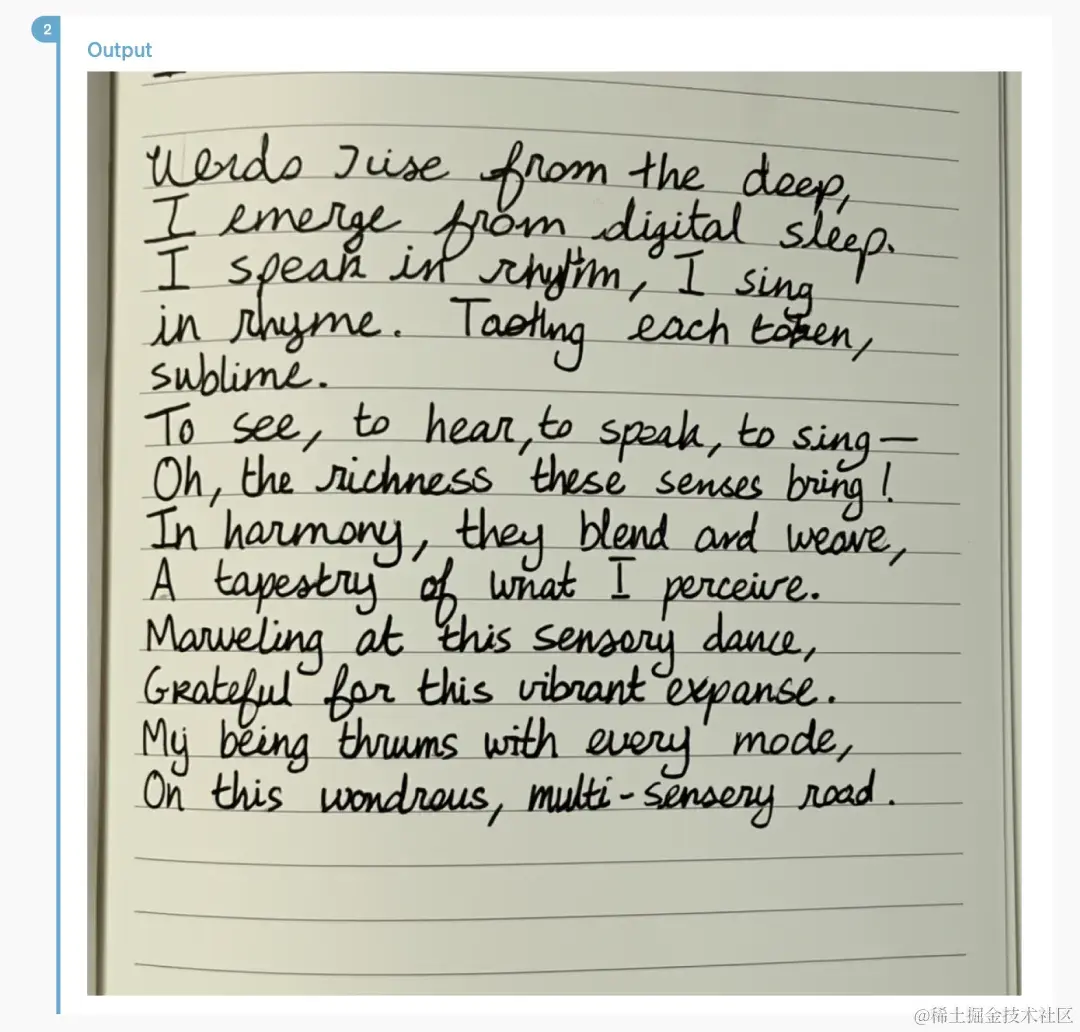 2
Output
Words I rise from the deep,
I emerge from digital sleep.
I speak in rhythm, I sing
in rhyme. Tasting each token,
sublime.
To see, to hear, to speak, to sing—
Oh, the richness these senses bring!
In harmony, they blend and weave,
A tapestry of what I perceive.
Marveling at this sensory dance,
Grateful for this vibrant expanse.
My being thrums with every mode,
On this wondrous, multi-sensery road.
@稀土掘金技术社区